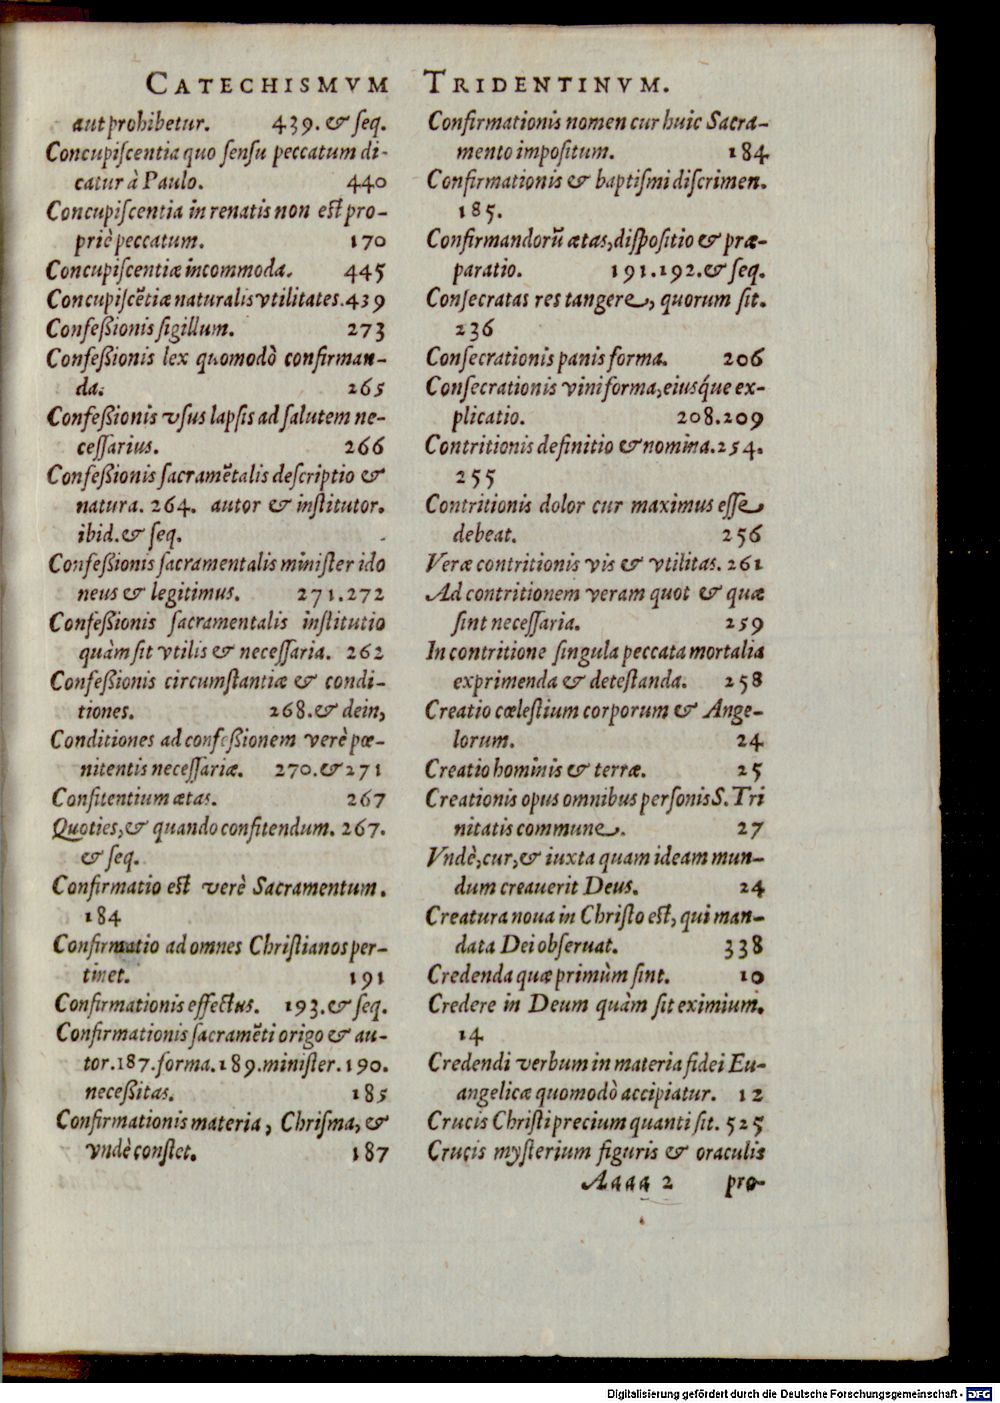 CATECHISMVM TRIDENTINVM.
aut prohibetur. 439. & ſeq.
Concupiſcentia quo ſenſu peccatum di-
catur à Paulo. 440
Concupiſcentia in renatis non eſt pro-
priè peccatum. 170
Concupiſcentiæ incommoda. 445
Concupiſcẽtiæ naturalis vtilitates. 439
Confeßionis ſigillum. 273
Confeßionis lex quomodò confirman-
da. 265
Confeßionis vſus lapſis ad ſalutem ne-
ceſſarius. 266
Confeßionis ſacramẽtalis deſcriptio &
natura. 264. autor & inſtitutor.
ibid. & ſeq.
Confeßionis ſacramentalis miniſter ido
neus & legitimus. 271.272
Confeßionis ſacramentalis inſtitutio
quàm ſit vtilis & neceſſaria. 262
Confeßionis circumſtantiæ & condi-
tiones. 268. & dein,
Conditiones ad confeßionem verè pœ-
nitentis neceſſariæ. 270. & 271
Confitentium ætas. 267
Quoties, & quando confitendum. 267.
& ſeq.
Confirmatio eſt verè Sacramentum.
184
Confirmatio ad omnes Chriſtianos per-
tinet. 191
Confirmationis effectus. 193. & ſeq.
Confirmationis ſacramẽti origo & au-
tor. 187. forma. 189. miniſter. 190.
neceßitas. 185
Confirmationis materia, Chriſma, &
vndè conſtet. 187
Confirmationis nomen cur huic Sacra-
mento impoſitum. 184
Confirmationis & baptiſmi diſcrimen.
185.
Confirmandorũ ætas, diſpoſitio & præ-
paratio. 191.192. & ſeq.
Conſecratas res tangere, quorum ſit.
236
Conſecrationis panis forma. 206
Conſecrationis vini forma, eiusq́ue ex-
plicatio. 208.209
Contritionis definitio & nomina. 254.
255
Contritionis dolor cur maximus eſſe
debeat. 256
Veræ contritionis vis & vtilitas. 261
Ad contritionem veram quot & quæ
ſint neceſſaria. 259
In contritione ſingula peccata mortalia
exprimenda & deteſtanda. 258
Creatio cœleſtium corporum & Ange-
lorum. 24
Creatio hominis & terræ. 25
Creationis opus omnibus perſonis S. Tri
nitatis commune. 27
Vndè, cur, & iuxta quam ideam mun-
dum creauerit Deus. 24
Creatura noua in Chriſto eſt, qui man-
data Dei obſeruat. 338
Credenda quæ primùm ſint. 10
Credere in Deum quàm ſit eximium.
14
Credendi verbum in materia fidei Eu-
angelicæ quomodò accipiatur. 12
Crucis Chriſti precium quanti ſit. 525
Crucis myſterium figuris & oraculis
Aaaa 2 pro-
Digitalisierung gefördert durch die Deutsche Forschungsgemeinschaft - DFG